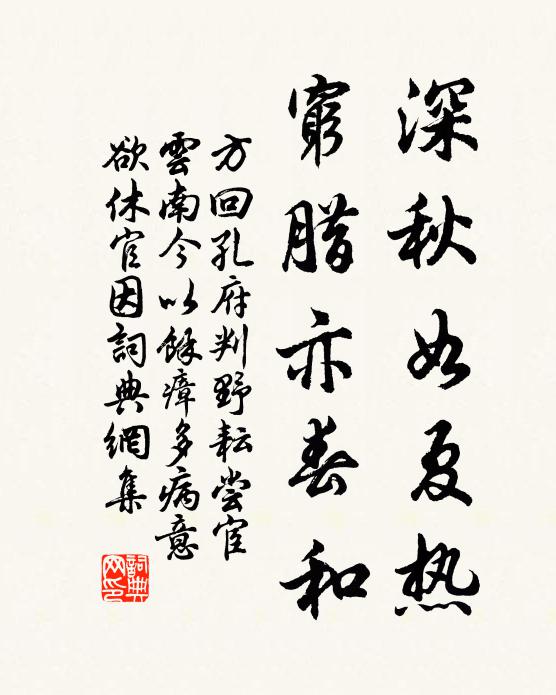 深秋如夏热
窮腊亦春和
方回孔府判野耘尝宦
雲南今以餘瘴多病意
欲休官因詞典網集
詞典网印